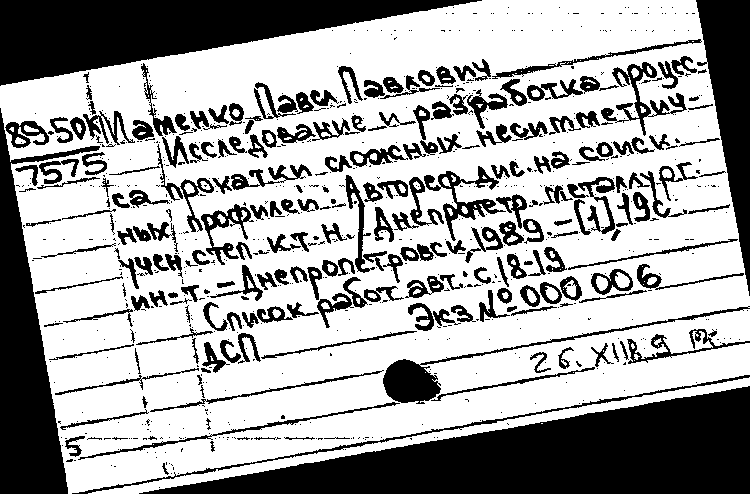 89-50К
7575
Маменко, Павел Павлович
Исследование и разработка процес-
са прокатки сложных несимметрич-
ных профилей: Автореф. дис. на соиск.
учен. степ. к.т.н. / Днепропетр. металлург.
ин-т. – Днепропетровск, 1989. – [1], 19с
Список работ авт.: с 18-19
ДСП Экз № 000 006
26. XII 8 9
5